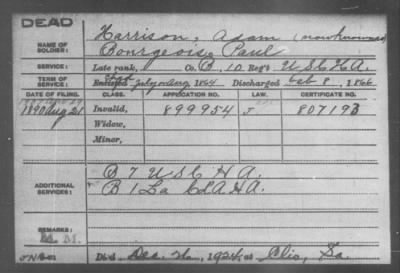 DEAD
NAME OF SOLDIER: Harrison, Adam (now known as)
Bourgeois, Paul
SERVICE: Late rank, Co. B, 10 Reg't U.S.C.H.A.
TERM OF SERVICE: Enlisted July or Aug, 1864 Discharged Feb 8, 1866
DATE OF FILING. CLASS. APPLICATION NO. LAW. CERTIFICATE NO.
1890 Aug 21 Invalid, 899954 J 807193
Widow,
Minor,
ADDITIONAL SERVICES: B 7 U S C H A.
B 1 La Cld A H A.
REMARKS: M. M.
Died Dec. 26, 1924, at Olis, La.